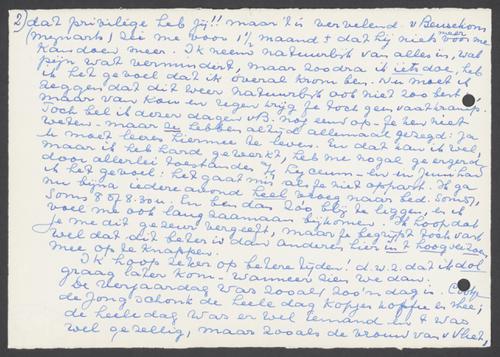 2) dat privilige heb jij!! maar 't is vervelend. v Beusekom
zei me voor 1 1/2 maand dat hij niets meer voor me
kan doen meer. Ik neem natuurlijk van alles in, wat
pijn wat vermindert, maar zoodra ik iets doe, heb
ik het gevoel dat ik overal krom ben. Nu moet ik
zeggen dat dit weer natuurlijk ook niet zoo best is
maar van kou en regen krijg je toch geen vaatkramp.
Toch bel ik dezer dagen v B. nog even op. Je kan niet
weten. maar ze hebben altijd allemaal gezegd: Ja
u moet leren hiermee te leven. En dat kan ik wel,
maar ik heb hard gewerkt, heb me nogal geërgerd
door allerlei toestanden 't Lyceum en
ik het gevoel: het gaat mis als je niet oppast. Ik ga
nu bijna iedere avond heel vroeg naar bed. Soms,
soms 8 of 8.30 u. En ben dan zóó blij te liggen, en ik
voel me ook langzaamaan bijkomen. Ik hoop dat
je me dit gezeur vergeeft, maar je begrijpt toch vast
wel dat dit beter is dan anderen hier in 't hoog
mee op te knappen.
Ik hoop zeker op betere tijden! d.w.z. dat ik dol-
graag later kom. wanneer zien we dan.
De verjaardag was zooals zoo'n dag is. Cootje
de Jong schonk de heele dag kopjes koffie en thee,
de heele dag was er wel iemand en 't was
wel gezellig, maar zooals de vrouw van v Vliet,